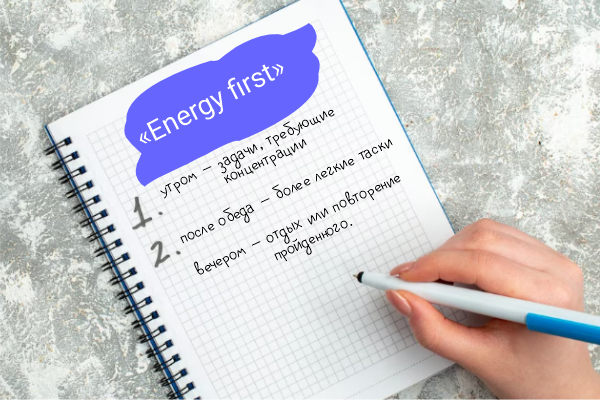 «Energy first»
утром – задачи, требующие
концентрации
1.
после обеда – более легкие таски
2.
вечером – отдых или повторение
пройденного.